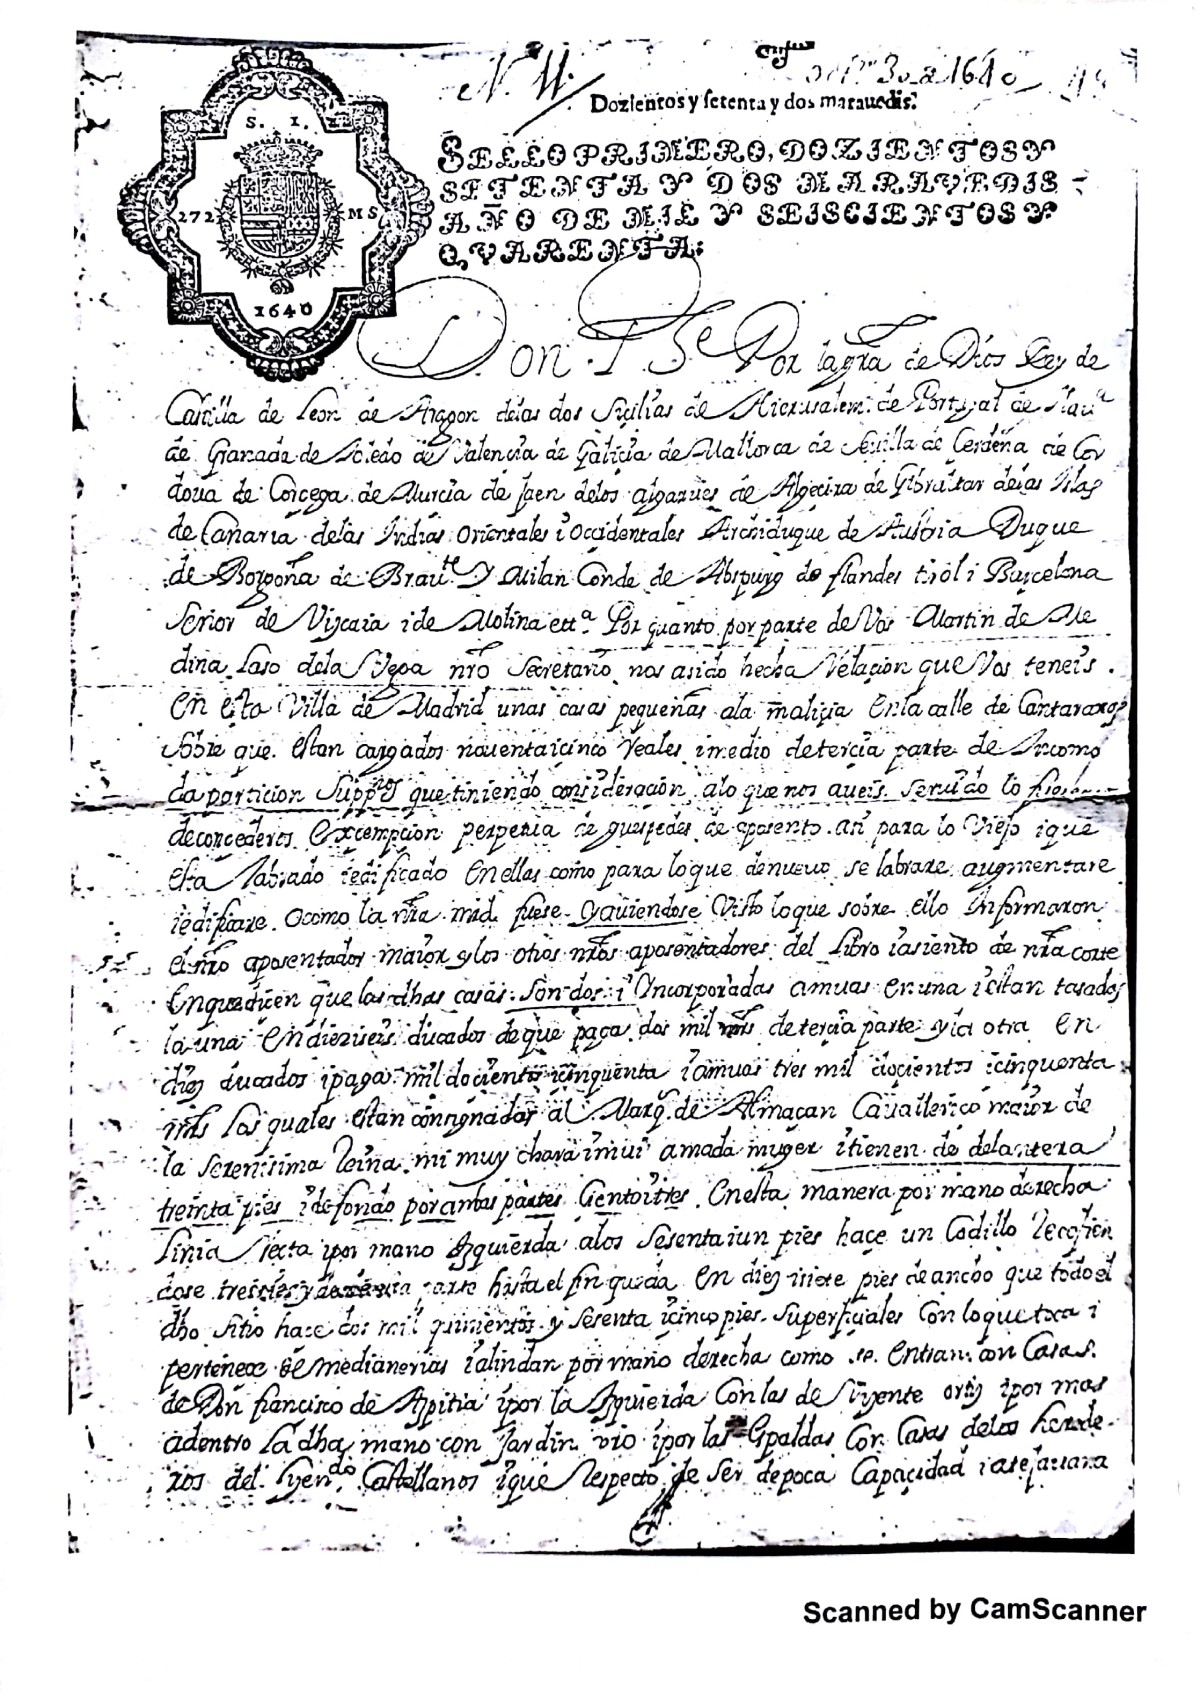 N. 11.
30 a 1640
Dozientos y setenta y dos marauedis.
S. I.
272 MS
1640
SELLO PRIMERO, DOZIENTOS Y
SETENTA Y DOS MARAVEDIS
AÑO DE MIL Y SEISCIENTOS Y
QVARENTA:
Don Pe Por la gra de Dios Rey de
Castilla de Leon de Aragon delas dos Sicilias de Hierusalem de Portugal de Naua
de Granada de Toledo de Valencia de Galicia de Mallorca de Seuilla de Cerdeña de Cor
doua de Corcega de Murcia de Jaen delos algarues de Algecira de Gibraltar delas Yslas
de Canaria delas Indias orientales i occidentales Archiduque de Austria Duque
de Borgoña de Braute Y Milan Conde de Abspurg de flandes tirol i Barcelona
Señor de Vizcaia i de Molina etta Por quanto por parte de Vos Martin de Me
dina Laso dela Vega nro Secretario nos asido hecha Relacion que Vos teneis
en esta Villa de Madrid unas casas pequeñas ala maliçia en la calle de Cantaranas
sobre que estan cargados nouenta i cinco reales i medio de tercia parte de Incomo
da particion Suppdo que tiniendo consideracion alo que nos aueis seruido lo
de concederos excempcion perpetua de guespedes de aposento asi para lo Viejo i que
esta labrado i edificado en ellas como para lo que de nueuo se labrare augmentare
i edificare o como la nra mrd fuese y auiendose Visto lo que sobre ello Informaron
el nro aposentador maior y los otros nros aposentadores del Libro i asiento de nra corte
en que dicen que las dhas casas son dos i Incorporadas amuas en una i estan tasadas
la una en diez i seis ducados de que paga dos mil mrs de tercia parte y la otra en
diez ducados i paga mil docientos i cinquenta i amuas tres mil docientos i cinquenta
mrs los quales estan consignados al Marq. de Almaçan Cauallerico maior de
la serenisima Reina mi muy chara i mui amada muger i tienen de delantera
treinta pies i de fondo por ambas partes Ciento i tres en esta manera por mano derecha
linia recta i por mano izquierda alos sesenta i un pies hace un Codillo Recogien
dose tres pies y hasta el fin queda en diez i siete pies de ancho que todo el
dho sitio hace dos mil quinientos y sesenta i cinco pies superficiales con lo que toca i
pertenece de medianerias i alindan por mano derecha como se entran con casas
de Don francisco de Azpitia i por la Izquierda con las de Viçente ortiz i por mas
adentro la dha mano con Jardin i por las Espaldas con casas delos herede
ros del liçendo Castellanos i que Respecto de ser de poca Capaçidad
Scanned by CamScanner